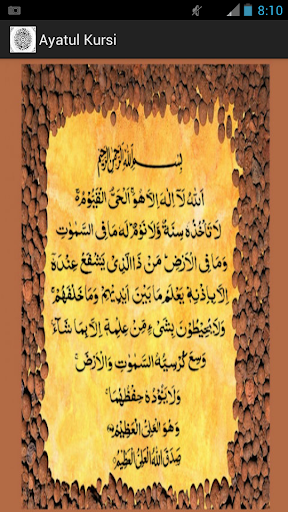 8:10
Ayatul Kursi
بِسْمِ اللّٰهِ الرَّحْمٰنِ الرَّحِيْمِ
اَللّٰهُ لَآ اِلٰهَ اِلَّا هُوَ ۚ اَلْحَيُّ الْقَيُّوْمُ ۚ
لَا تَاْخُذُهٗ سِنَةٌ وَّلَا نَوْمٌ ؕ لَهٗ مَا فِى السَّمٰوٰتِ
وَمَا فِى الْاَرْضِ ؕ مَنْ ذَا الَّذِيْ يَشْفَعُ عِنْدَهٗٓ
اِلَّا بِاِذْنِهٖ ؕ يَعْلَمُ مَا بَيْنَ اَيْدِيْهِمْ وَمَا خَلْفَهُمْ ۚ
وَلَا يُحِيْطُوْنَ بِشَيْءٍ مِّنْ عِلْمِهٖٓ اِلَّا بِمَا شَآءَ ۚ
وَسِعَ كُرْسِيُّهُ السَّمٰوٰتِ وَالْاَرْضَ ۚ
وَلَا يَـُٔوْدُهٗ حِفْظُهُمَا ۚ
وَهُوَ الْعَلِيُّ الْعَظِيْمُ
صَدَقَ اللّٰهُ الْعَلِيُّ الْعَظِيْمُ